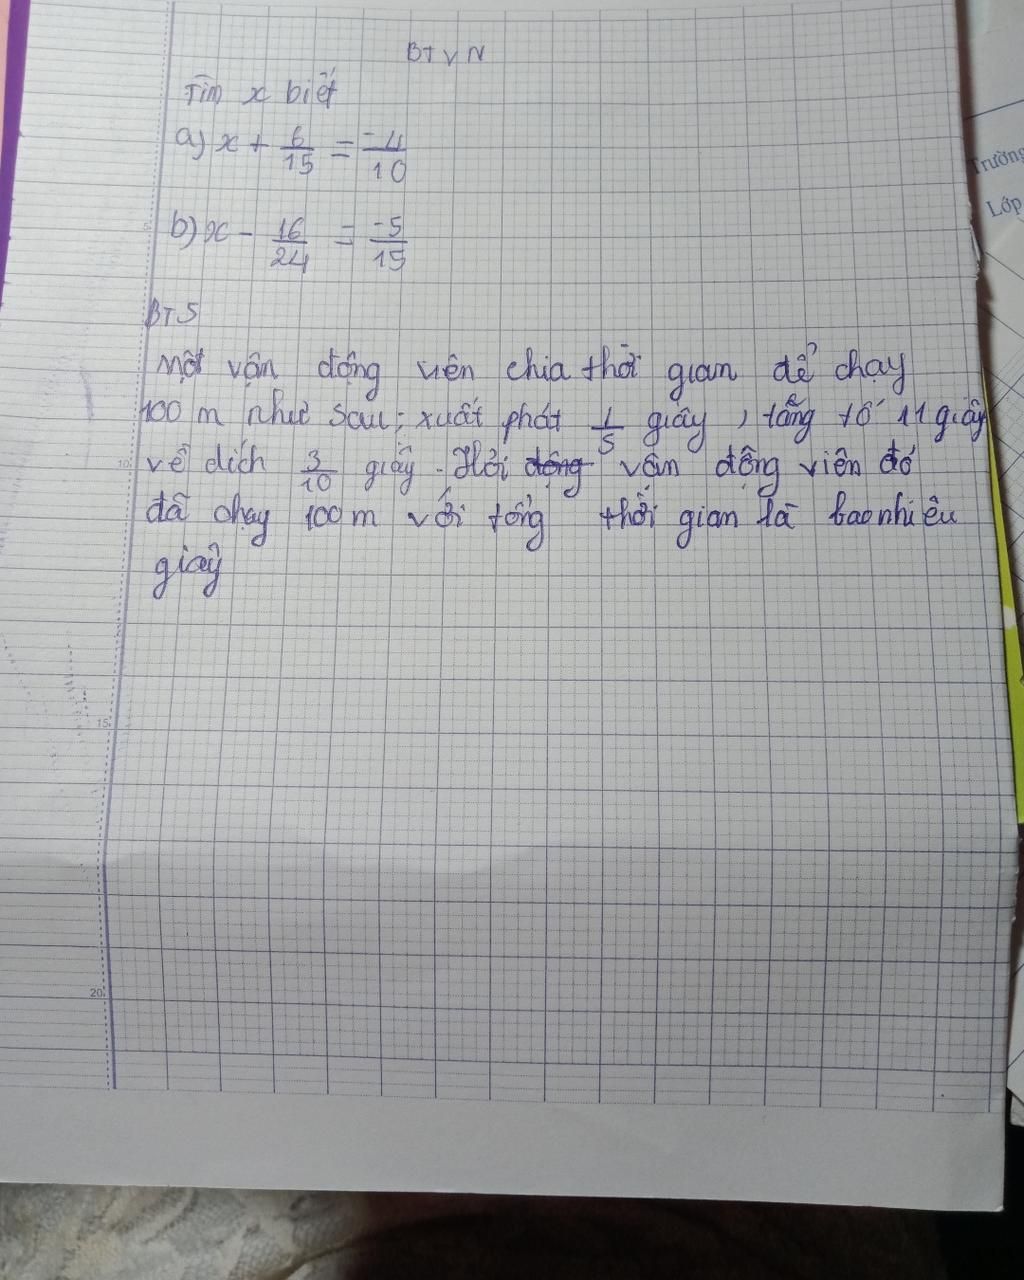 BTVN
Tìm x biết
a) x + 6/15 = -4/10
b) x - 16/24 = -5/15
BT5
Một vận động viên chia thời gian để chạy
100 m như sau; xuất phát 1/5 giây, tăng tố 11 giây
về đích 3/10 giây. Hỏi động vân động viên đó
đã chạy 100m với tổng thời gian là bao nhiêu
giây
5
10
15
20
Trường
Lớp